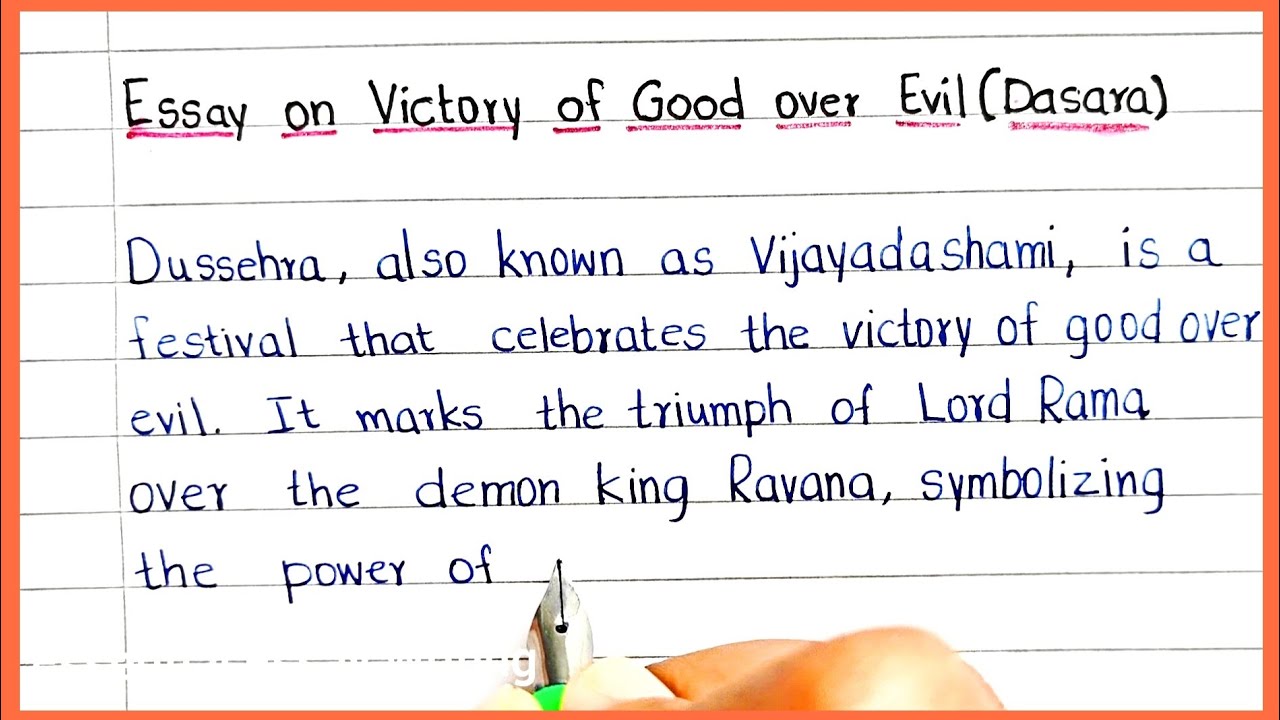 Essay on Victory of Good over Evil (Dasara)
Dussehra, also known as Vijayadashami, is a
festival that celebrates the victory of good over
evil. It marks the triumph of Lord Rama
over the demon king Ravana, symbolizing
the power of